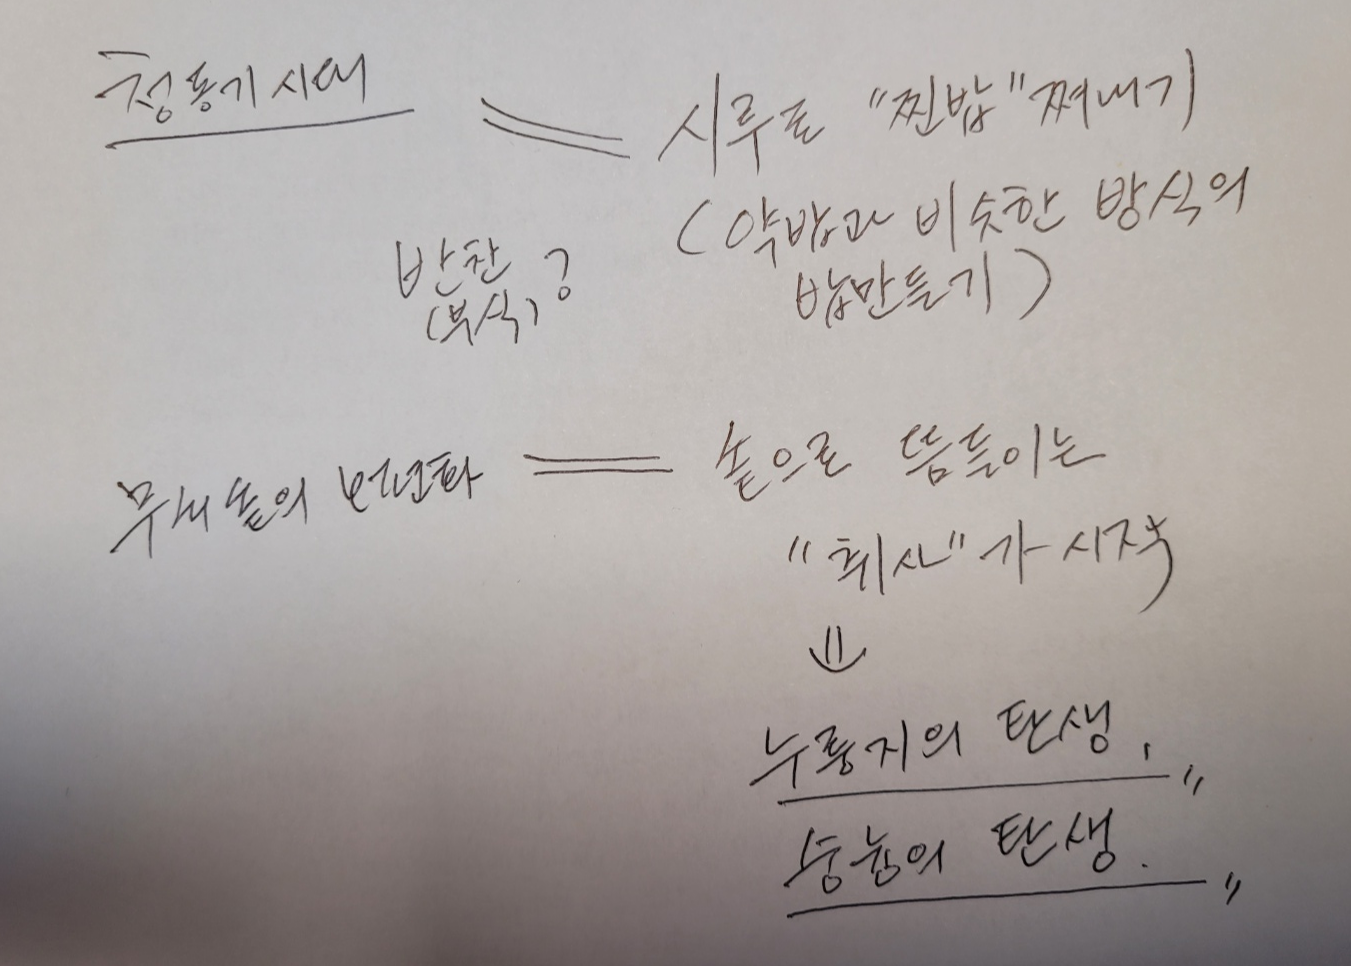 청동기 시대
시루로 "찐밥" 쪄내기
(약밥과 비슷한 방식의
밥만들기)
반찬
(부식)?
무쇠솥의 보편화
솥으로 뜸들이는
"취사"가 시작
⇓
누룽지의 탄생.
숭늉의 탄생.